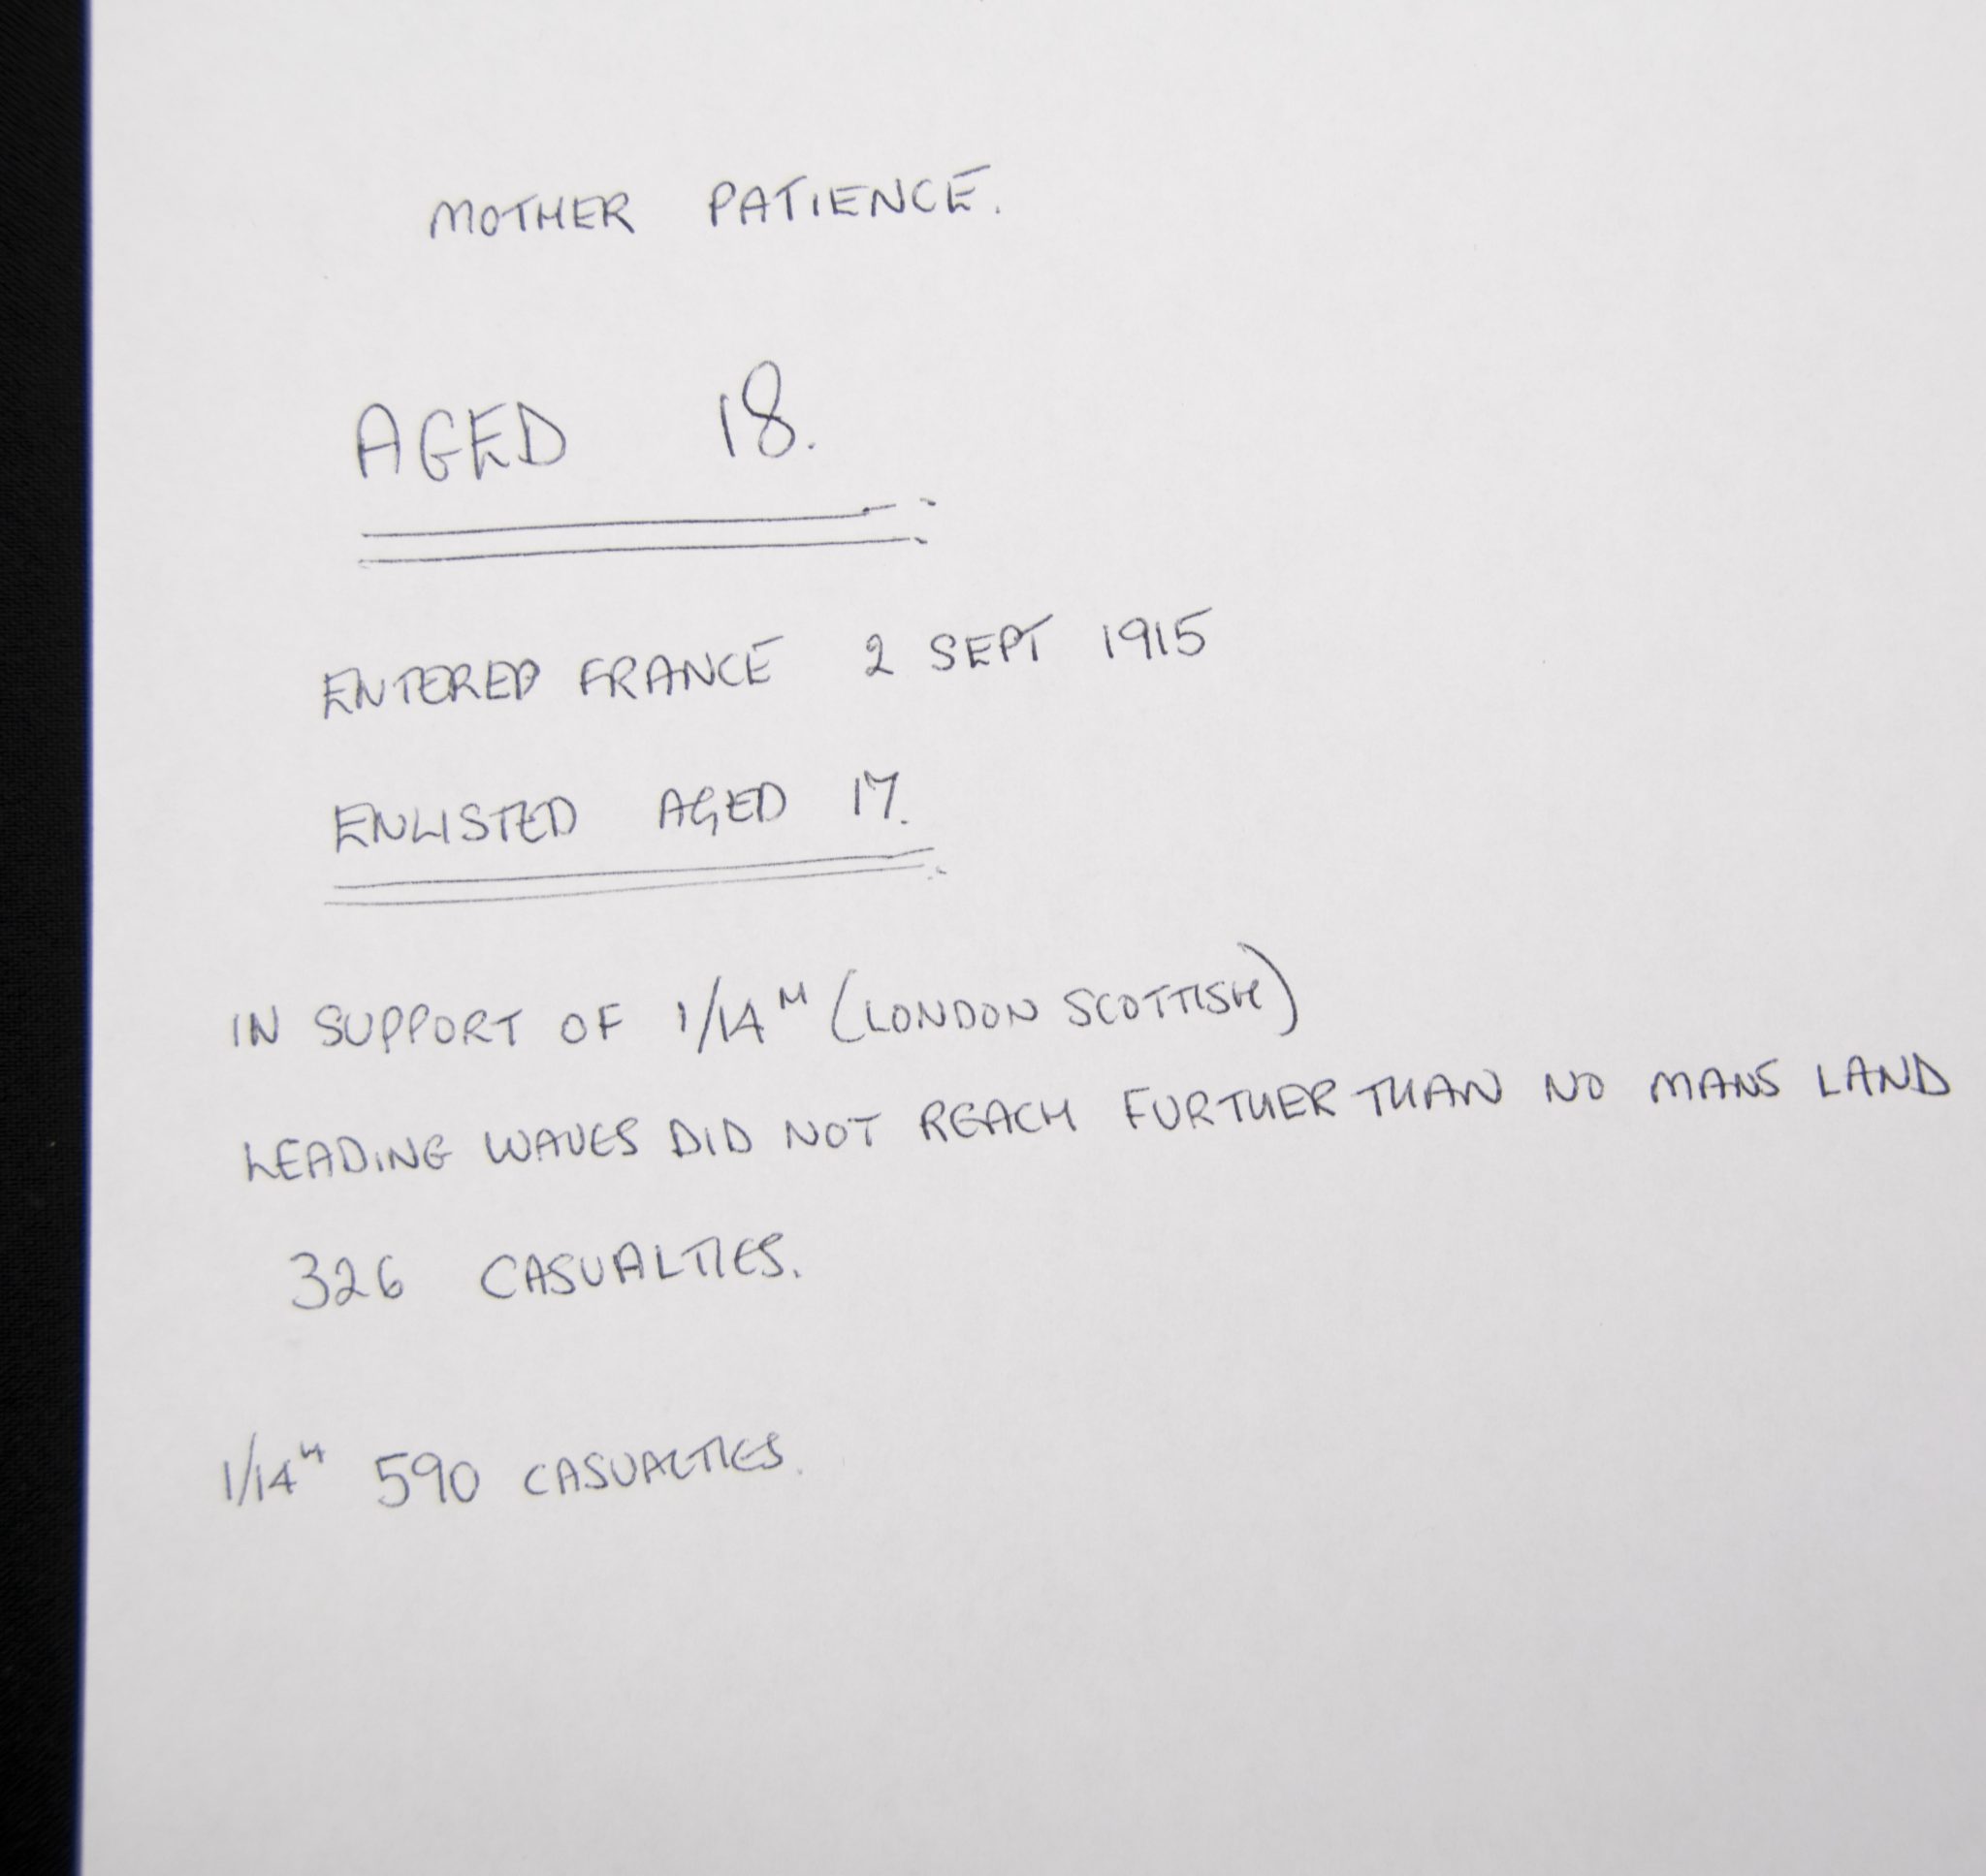 MOTHER PATIENCE.
AGED 18.
ENTERED FRANCE 2 SEPT 1915
ENLISTED AGED 17.
IN SUPPORT OF 1/14TH (LONDON SCOTTISH)
LEADING WAVES DID NOT REACH FURTHER THAN NO MANS LAND
326 CASUALTIES.
1/14TH 590 CASUALTIES.